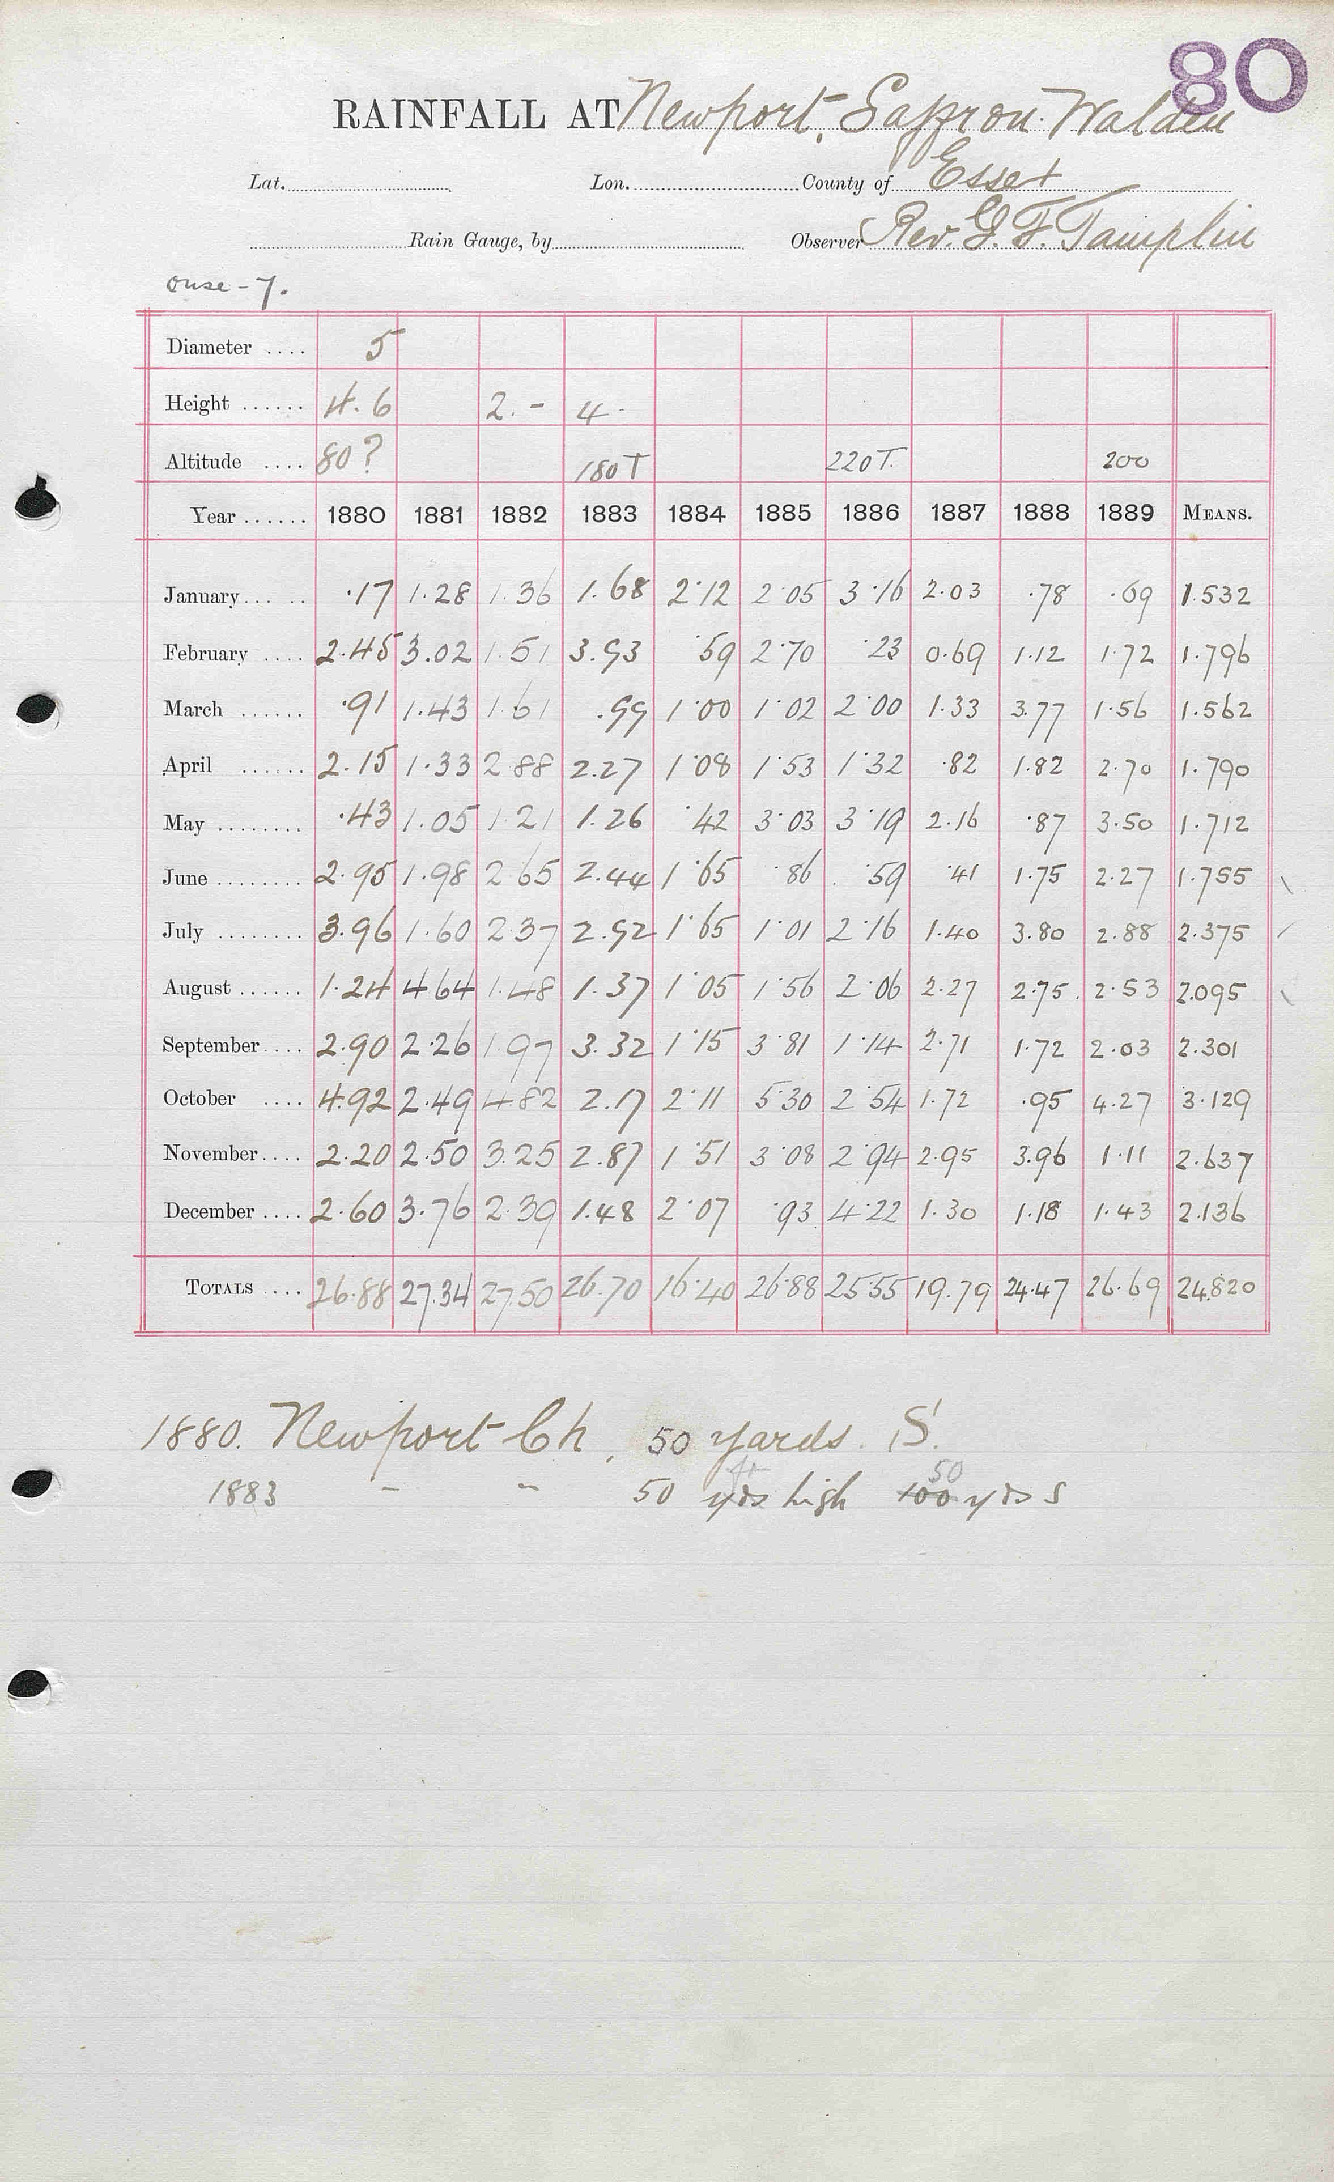 80
RAINFALL AT Newport, Saffron Walden
Lat. Lon. County of Essex
Rain Gauge, by Observer Rev. G. F. Tamplin
ouse - 7.
Diameter .... 5
Height ...... 4.6 2.- 4.
Altitude .... 80? 180T 220T. 200
Year ...... 1880 1881 1882 1883 1884 1885 1886 1887 1888 1889 MEANS.
January... .. .17 1.28 1.36 1.68 2.12 2.05 3.16 2.03 .78 .69 1.532
February .... 2.45 3.02 1.51 3.93 .59 2.70 .23 0.69 1.12 1.72 1.796
March ...... .91 1.43 1.61 .99 1.00 1.02 2.00 1.33 3.77 1.56 1.562
April ...... 2.15 1.33 2.88 2.27 1.08 1.53 1.32 .82 1.82 2.70 1.790
May ........ .43 1.05 1.21 1.26 .42 3.03 3.19 2.16 .87 3.50 1.712
June ........ 2.95 1.98 2.65 2.44 1.65 .86 .59 .41 1.75 2.27 1.755
July ........ 3.96 1.60 2.37 2.92 1.65 1.01 2.16 1.40 3.80 2.88 2.375
August ...... 1.24 4.64 1.48 1.37 1.05 1.56 2.06 2.27 2.75 2.53 2.095
September.... 2.90 2.26 1.97 3.32 1.15 3.81 1.14 2.71 1.72 2.03 2.301
October .... 4.92 2.49 4.82 2.17 2.11 5.30 2.54 1.72 .95 4.27 3.129
November.... 2.20 2.50 3.25 2.87 1.51 3.08 2.94 2.95 3.96 1.11 2.637
December .... 2.60 3.76 2.39 1.48 2.07 .93 4.22 1.30 1.18 1.43 2.136
TOTALS .... 26.88 27.34 27.50 26.70 16.40 26.88 25.55 19.79 24.47 26.69 24.820
1880. Newport Ch, 50 yards. S.
ft 50
1883 - " 50 yds high 100 yds S